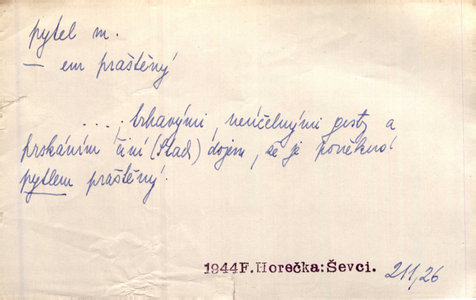 pytel m.
— em praštěný
.... trhavými neúčelnými gesty a
prskáním činí (Flad) dojem, že je poněkud
pytlem praštěný.
1944 F. Horečka: Ševci. 211,26